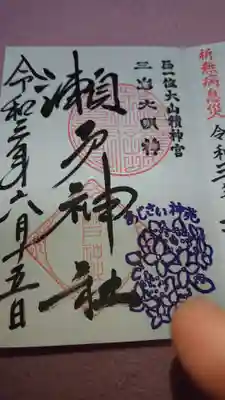 祈熱病息災
令和三
正一位大山積神宮
三嶋大明神
瀬戸神社
あじさい神苑
令和三年六月十五日